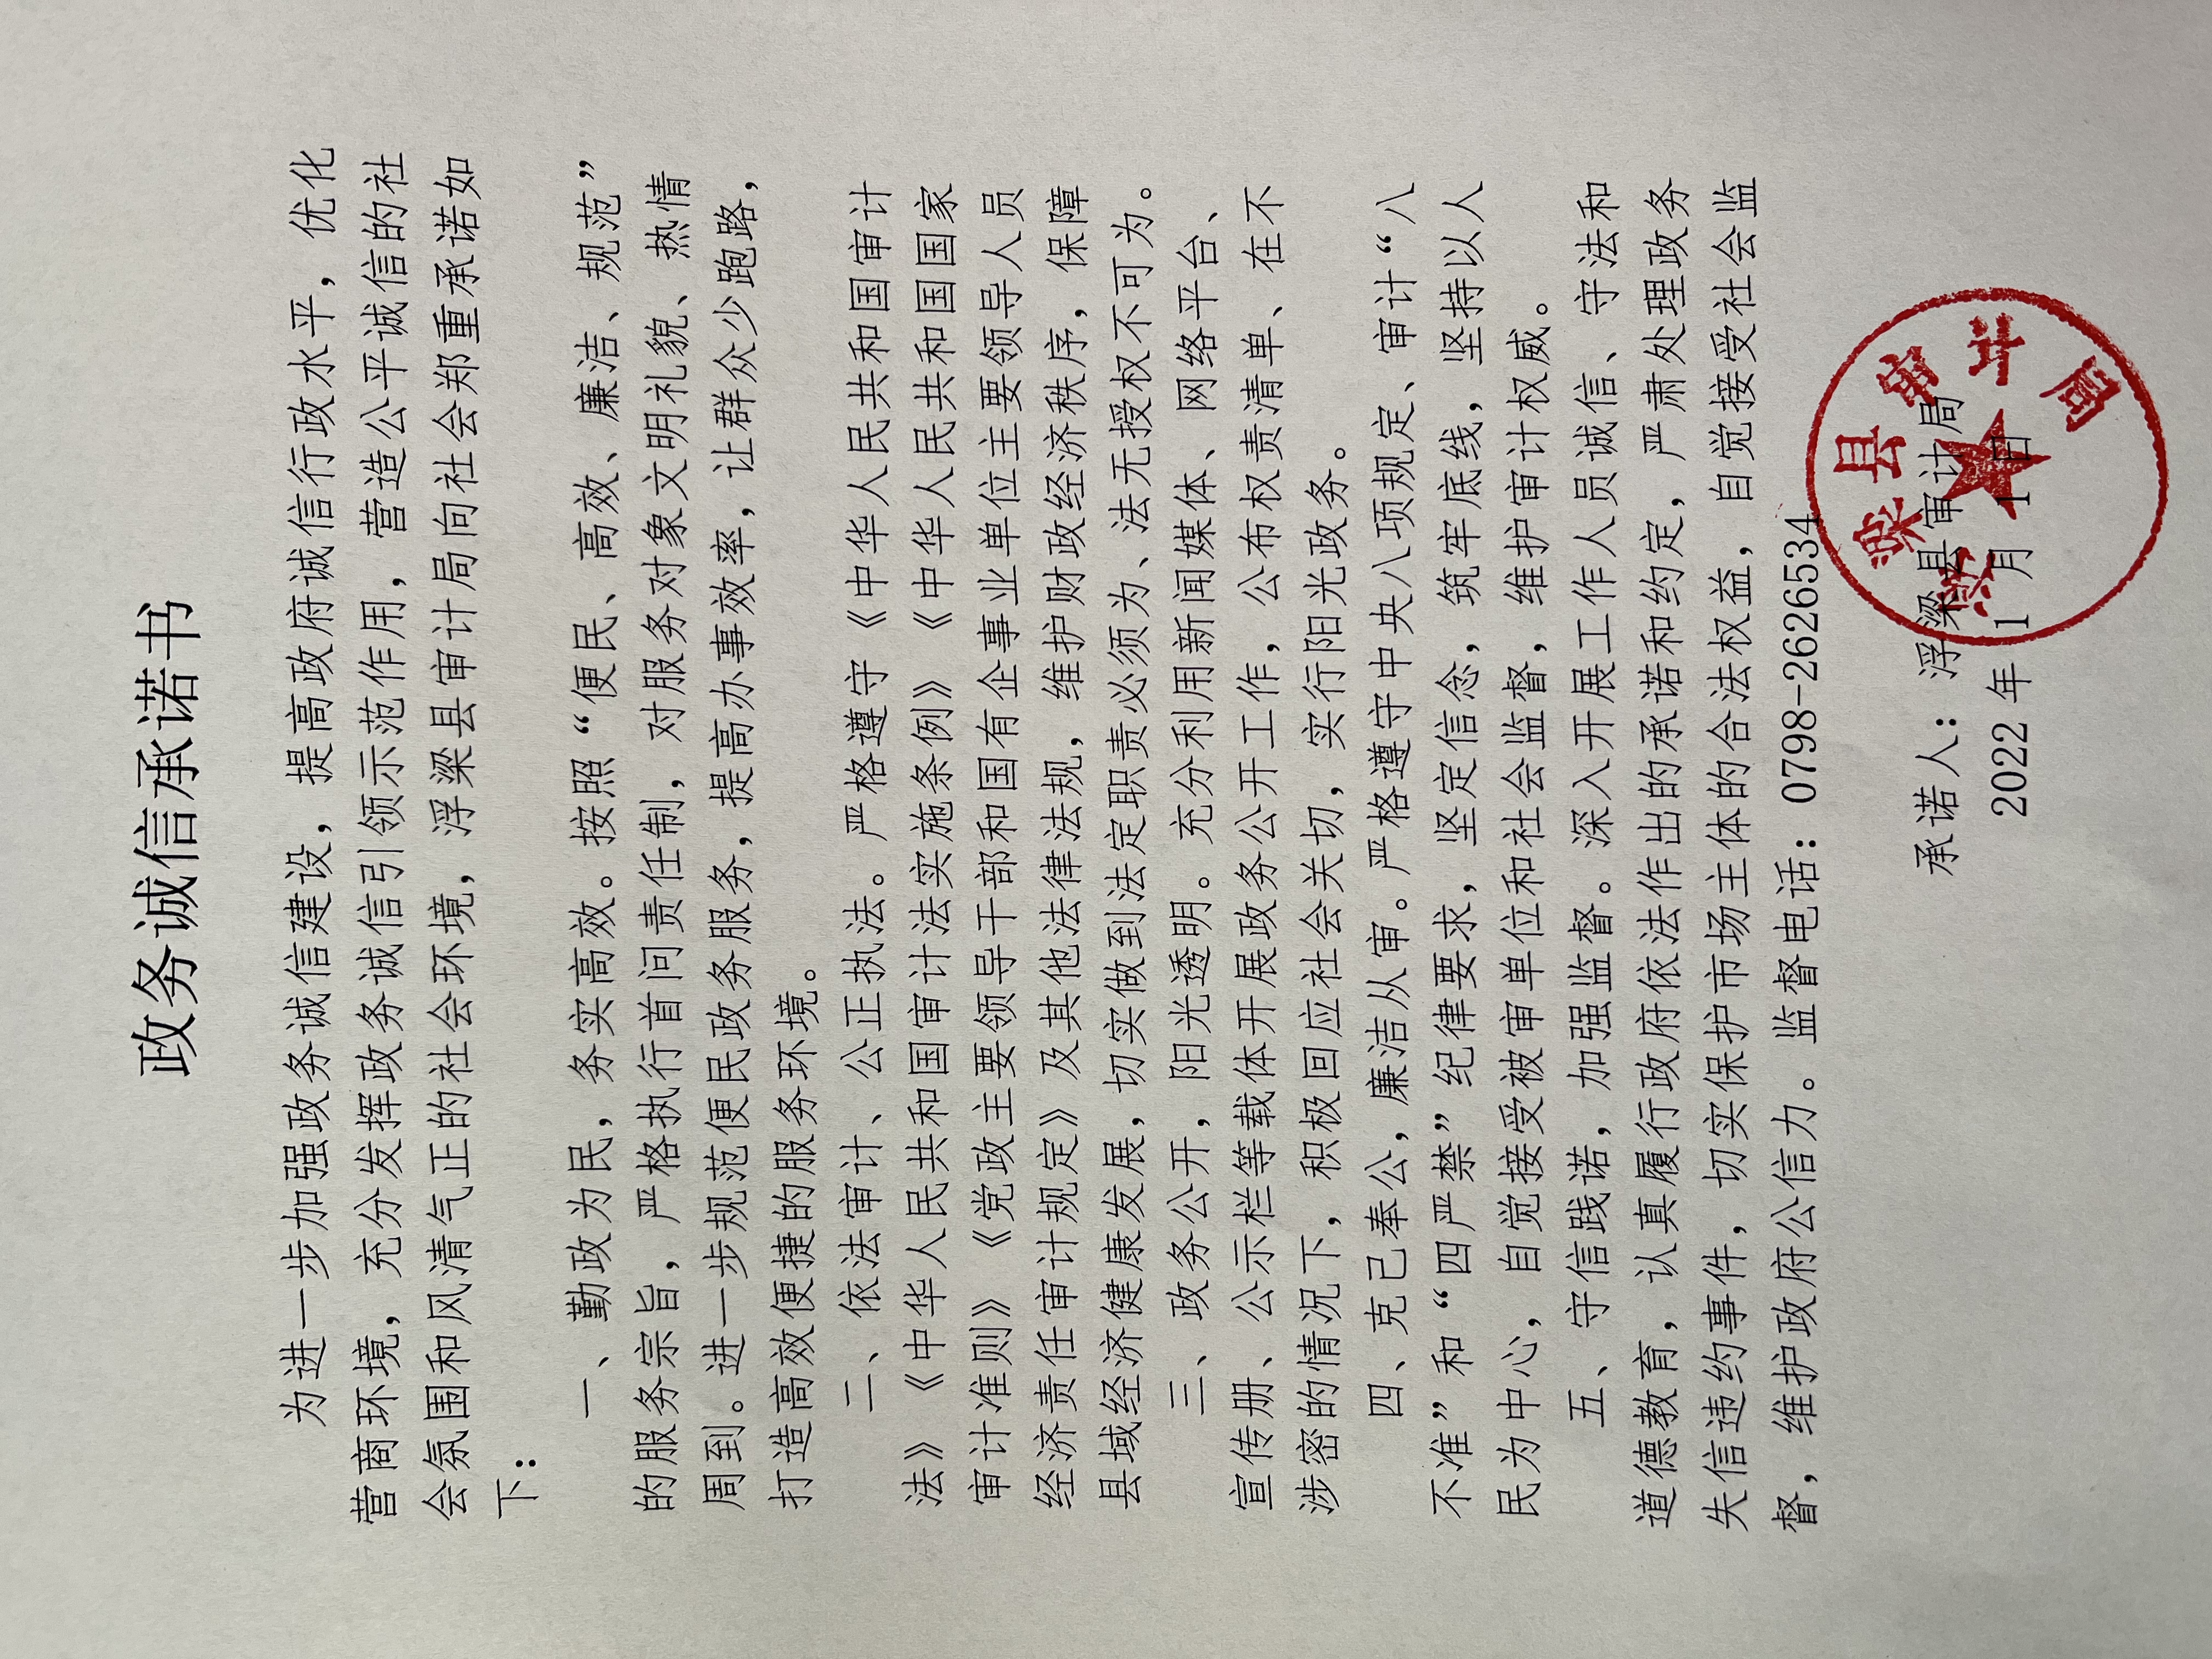 政务诚信承诺书
为进一步加强政务诚信建设，提高政府诚信行政水平，优化
营商环境，充分发挥政务诚信引领示范作用，营造公平诚信的社
会氛围和风清气正的社会环境，浮梁县审计局向社会郑重承诺如
下：
一、勤政为民，务实高效。按照“便民、高效、廉洁、规范”
的服务宗旨，严格执行首问责任制，对服务对象文明礼貌、热情
周到。进一步规范便民政务服务，提高办事效率，让群众少跑路，
打造高效便捷的服务环境。
二、依法审计、公正执法。严格遵守《中华人民共和国审计
法》《中华人民共和国审计法实施条例》《中华人民共和国国家
审计准则》《党政主要领导干部和国有企事业单位主要领导人员
经济责任审计规定》及其他法律法规，维护财政经济秩序，保障
县域经济健康发展，切实做到法定职责必须为、法无授权不可为。
三、政务公开，阳光透明。充分利用新闻媒体、网络平台、
宣传册、公示栏等载体开展政务公开工作，公布权责清单、在不
涉密的情况下，积极回应社会关切，实行阳光政务。
四、克己奉公，廉洁从审。严格遵守中央八项规定、审计“八
不准”和“四严禁”纪律要求，坚定信念，筑牢底线，坚持以人
民为中心，自觉接受被审单位和社会监督，维护审计权威。
五、守信践诺，加强监督。深入开展工作人员诚信、守法和
道德教育，认真履行政府依法作出的承诺和约定，严肃处理政务
失信违约事件，切实保护市场主体的合法权益，自觉接受社会监
督，维护政府公信力。监督电话：0798-2626534
承诺人：浮梁县审计局
2022年1月1日
浮梁县审计局